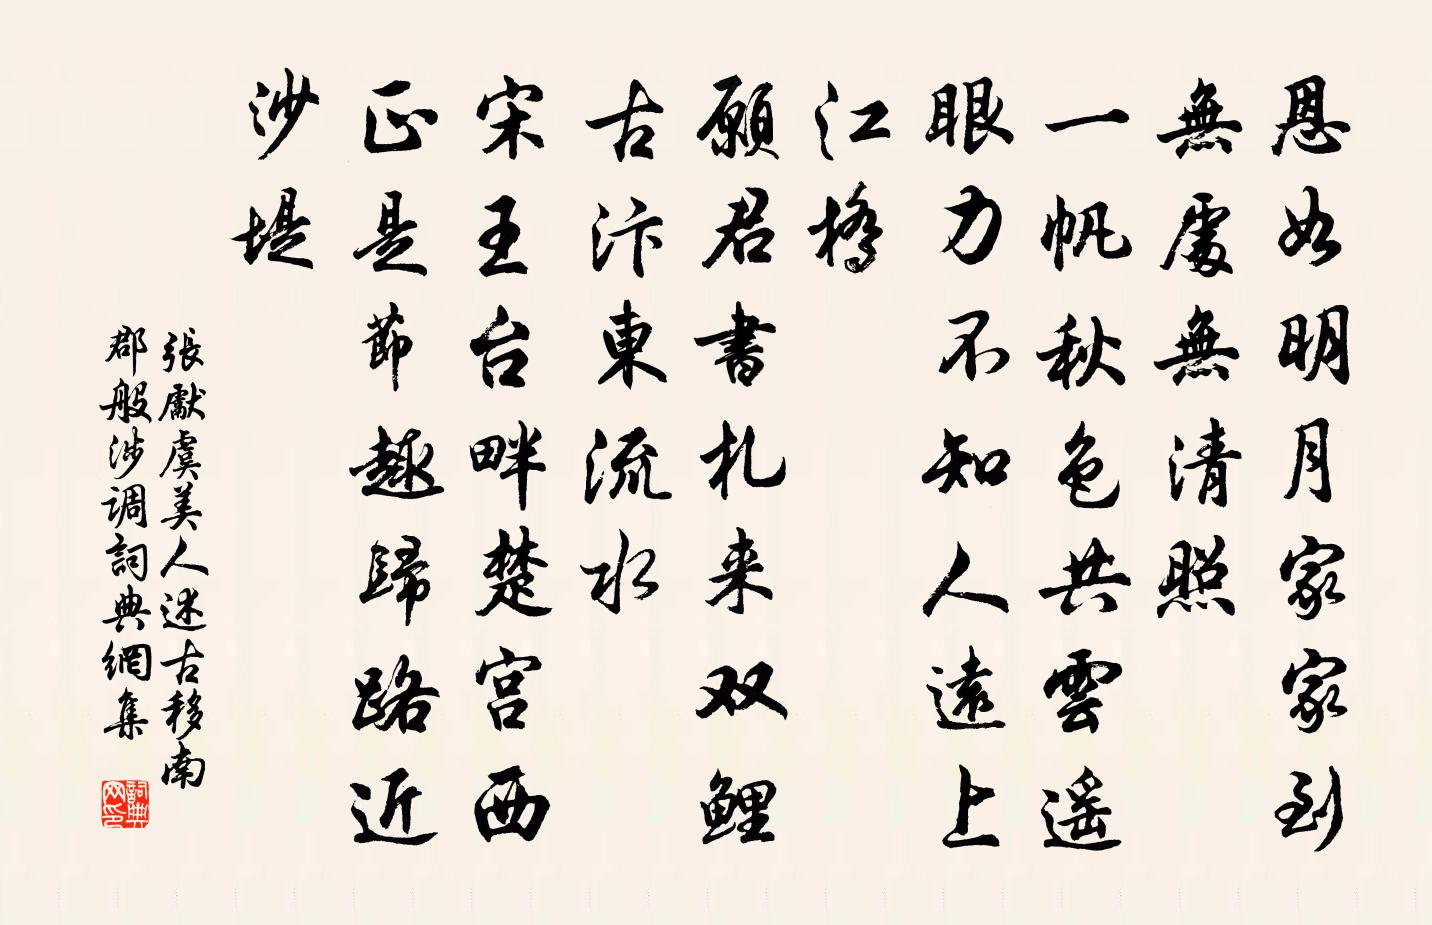 恩如明月家家到
無處無清照
一帆秋色共雲遥
眼力不知人遠上
江橋
願君書札来双鲤
古汴東流水
宋王台畔楚宫西
正是節趣歸路近
沙堤
張獻虞美人述古移南
郡般涉调詞典網集
詞典网印